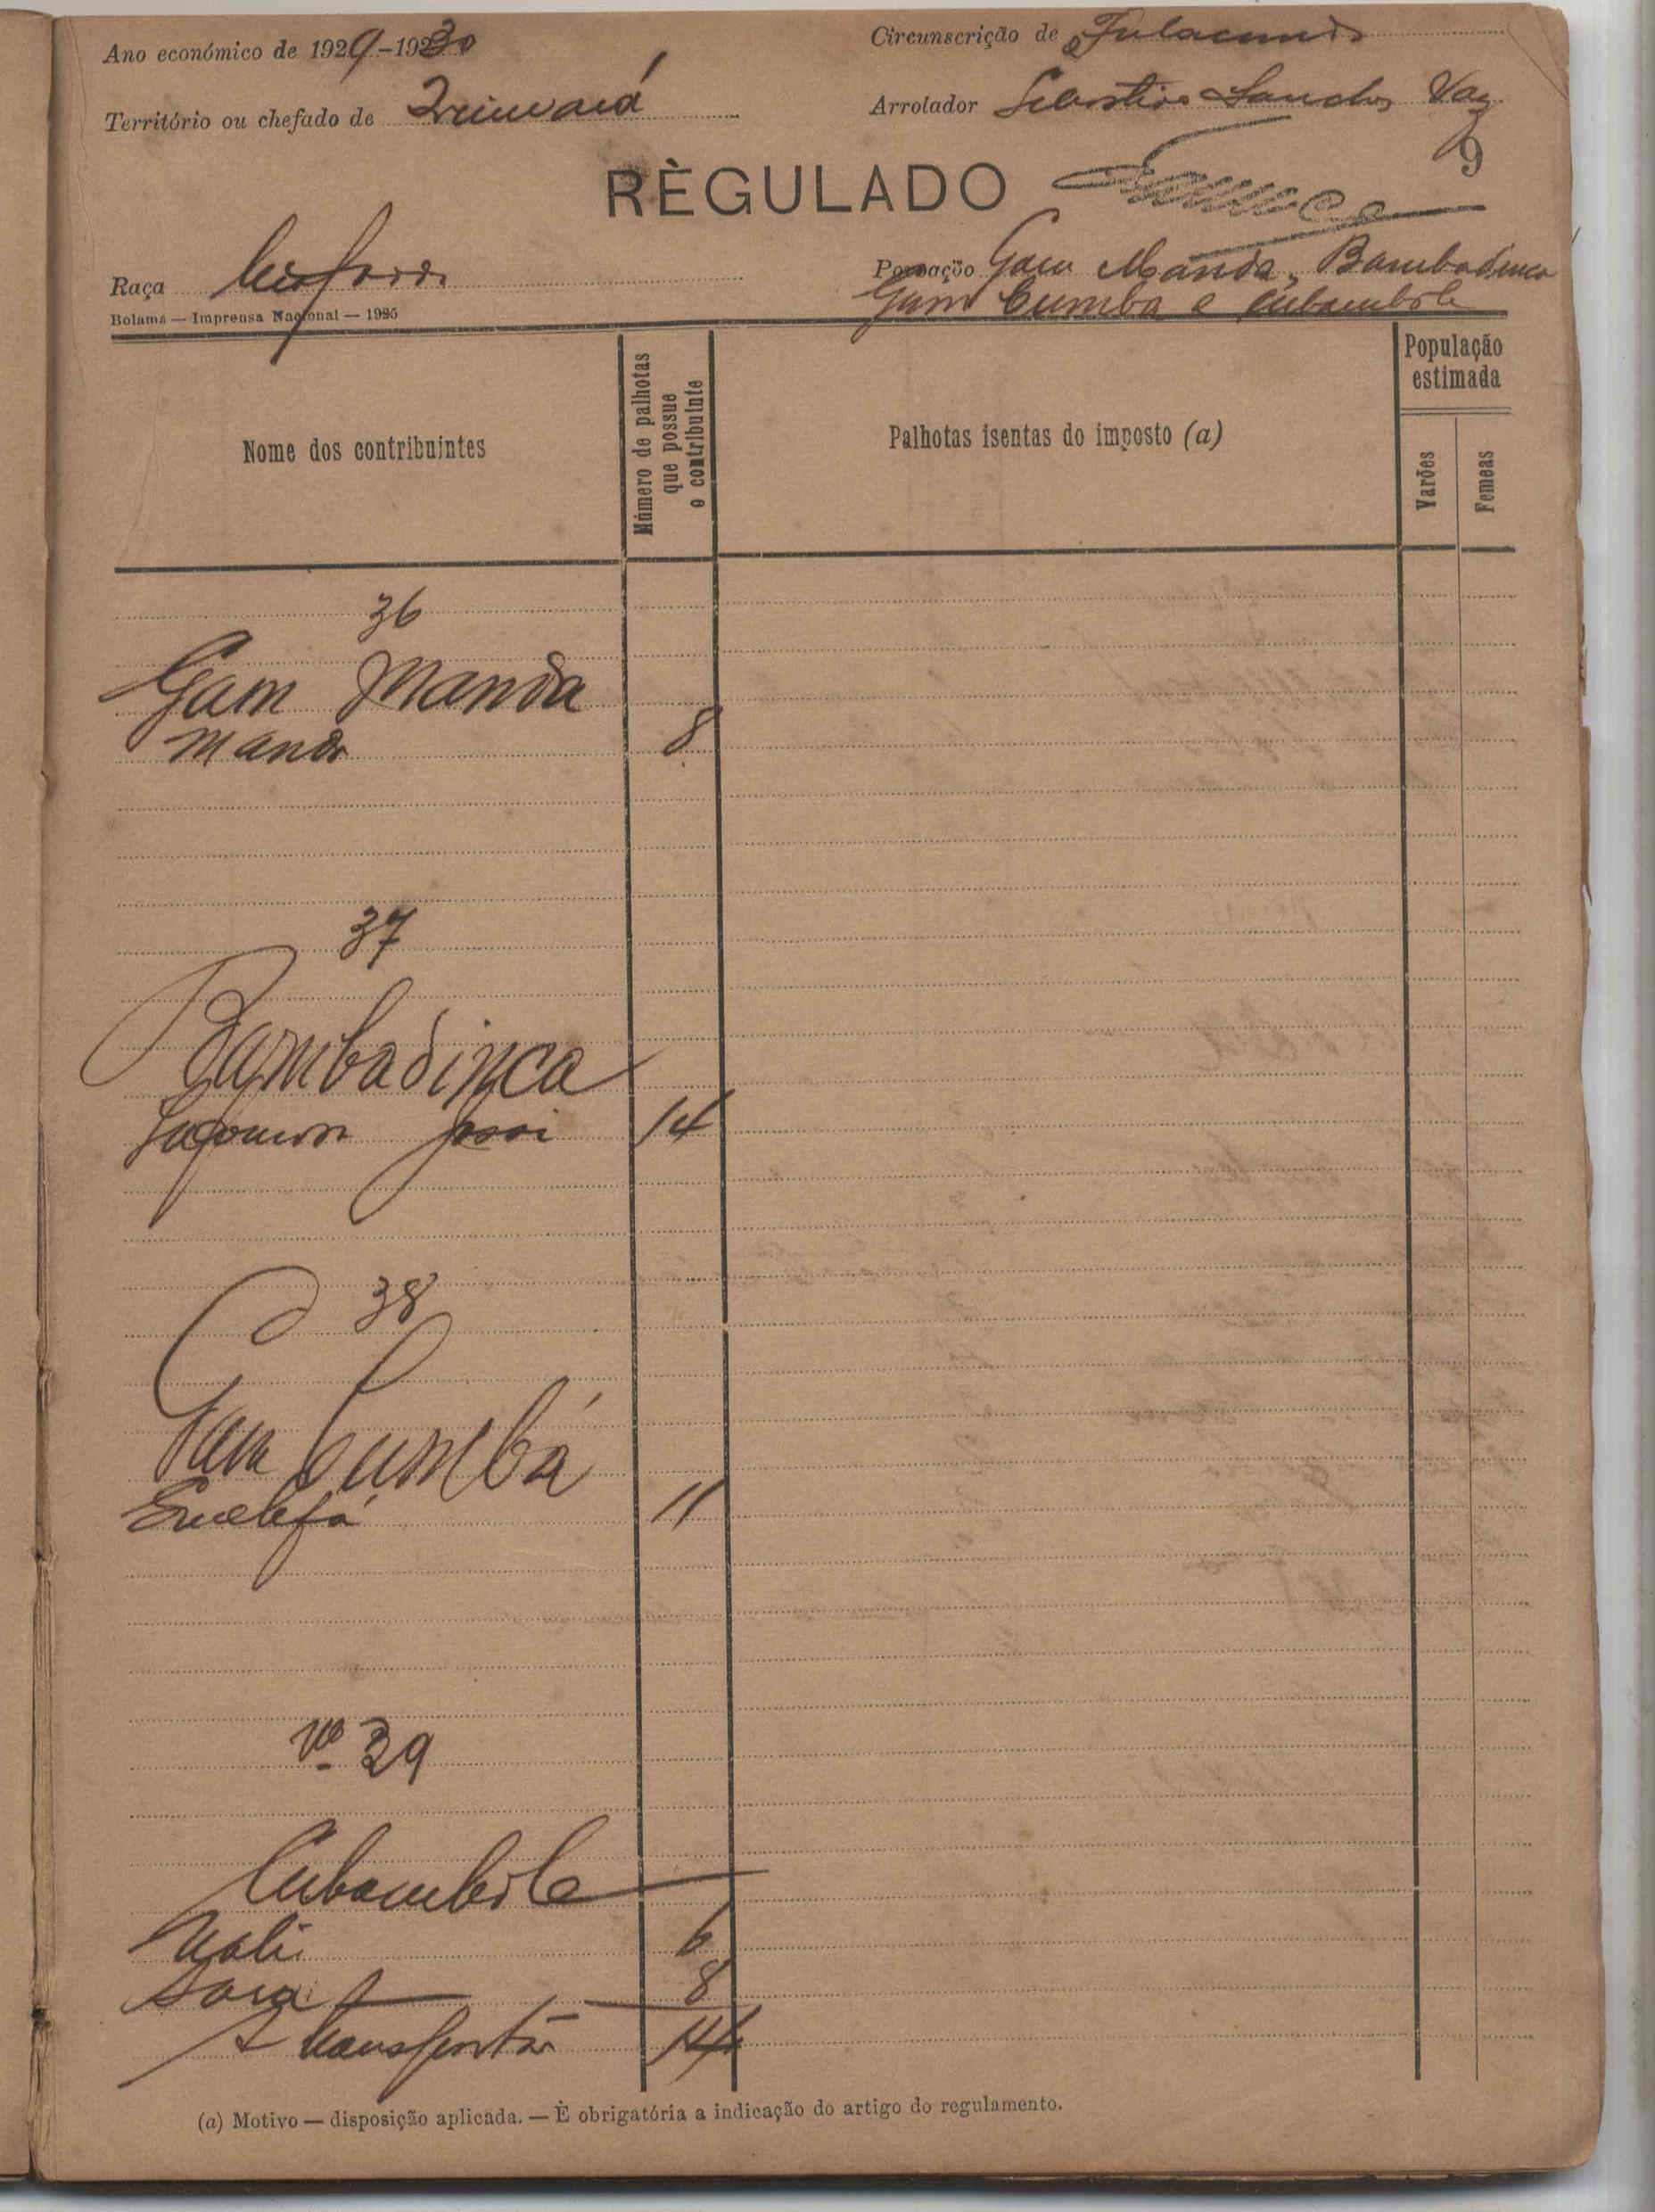 Ano económico de 1929-1930
Circunscrição de Fulacunda
Território ou chefado de
Arrolador Sebastião Sanches Vaz
9
RÈGULADO
Raça Beafada
Povoação Gam Manda, Bambadinca
Gam Cumba e Cubambole
Bolama — Imprensa Nacional — 1925
Nome dos contribuintes
Número de palhotas que possue o contribuinte
Palhotas isentas do imposto (a)
População estimada
Varões
Femeas
36
Gam Manda
Mando 8
37
Bambadinca
14
38
Gam Cumbá
11
Nº 39
Cubambole
Uali 6
8
A transportar 14
(a) Motivo — disposição aplicada. — È obrigatória a indicação do artigo do regulamento.